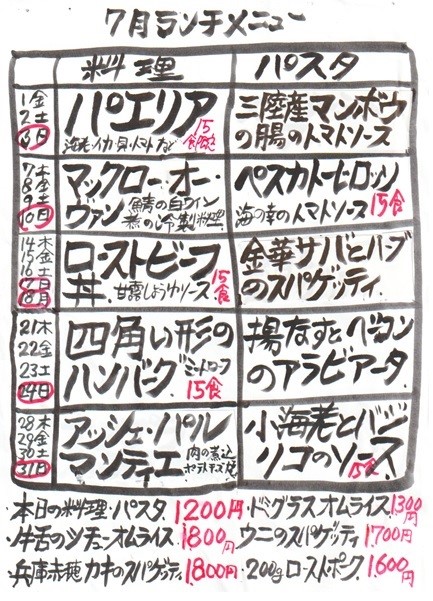 7月ランチメニュー
料理 パスタ
1金
2土
3日
パエリア 15食限定
海老・イカ・貝・トマトなど
三陸産マンボウ
の腸のトマトソース
7木
8金
9土
10日
マックロー・オー・
ヴァン 鯖の白ワイン
煮の冷製料理
ペスカトーレ・ロッソ
海の幸のトマトソース 15食
14木
15金
16土
17日
18月
ローストビーフ
丼 甘露しょうゆソース 15食
金華サバとハーブ
のスパゲッティ
21木
22金
23土
24日
四角い形の
ハンバーグ ミートローフ
15食
揚なすとベーコン
のアラビアータ
28木
29金
30土
31日
アッシェ・パル
マンティエ 肉の煮込
ポテトチーズ焼
小海老とバジ
リコのソース 15食
・本日の料理・パスタ 1200円 ・ドミグラスオムライス 1300円
・牛舌のシチューオムライス 1800円 ・ウニのスパゲッティ 1700円
・兵庫赤穂カキのスパゲッティ 1800円 ・200gローストポーク 1600円